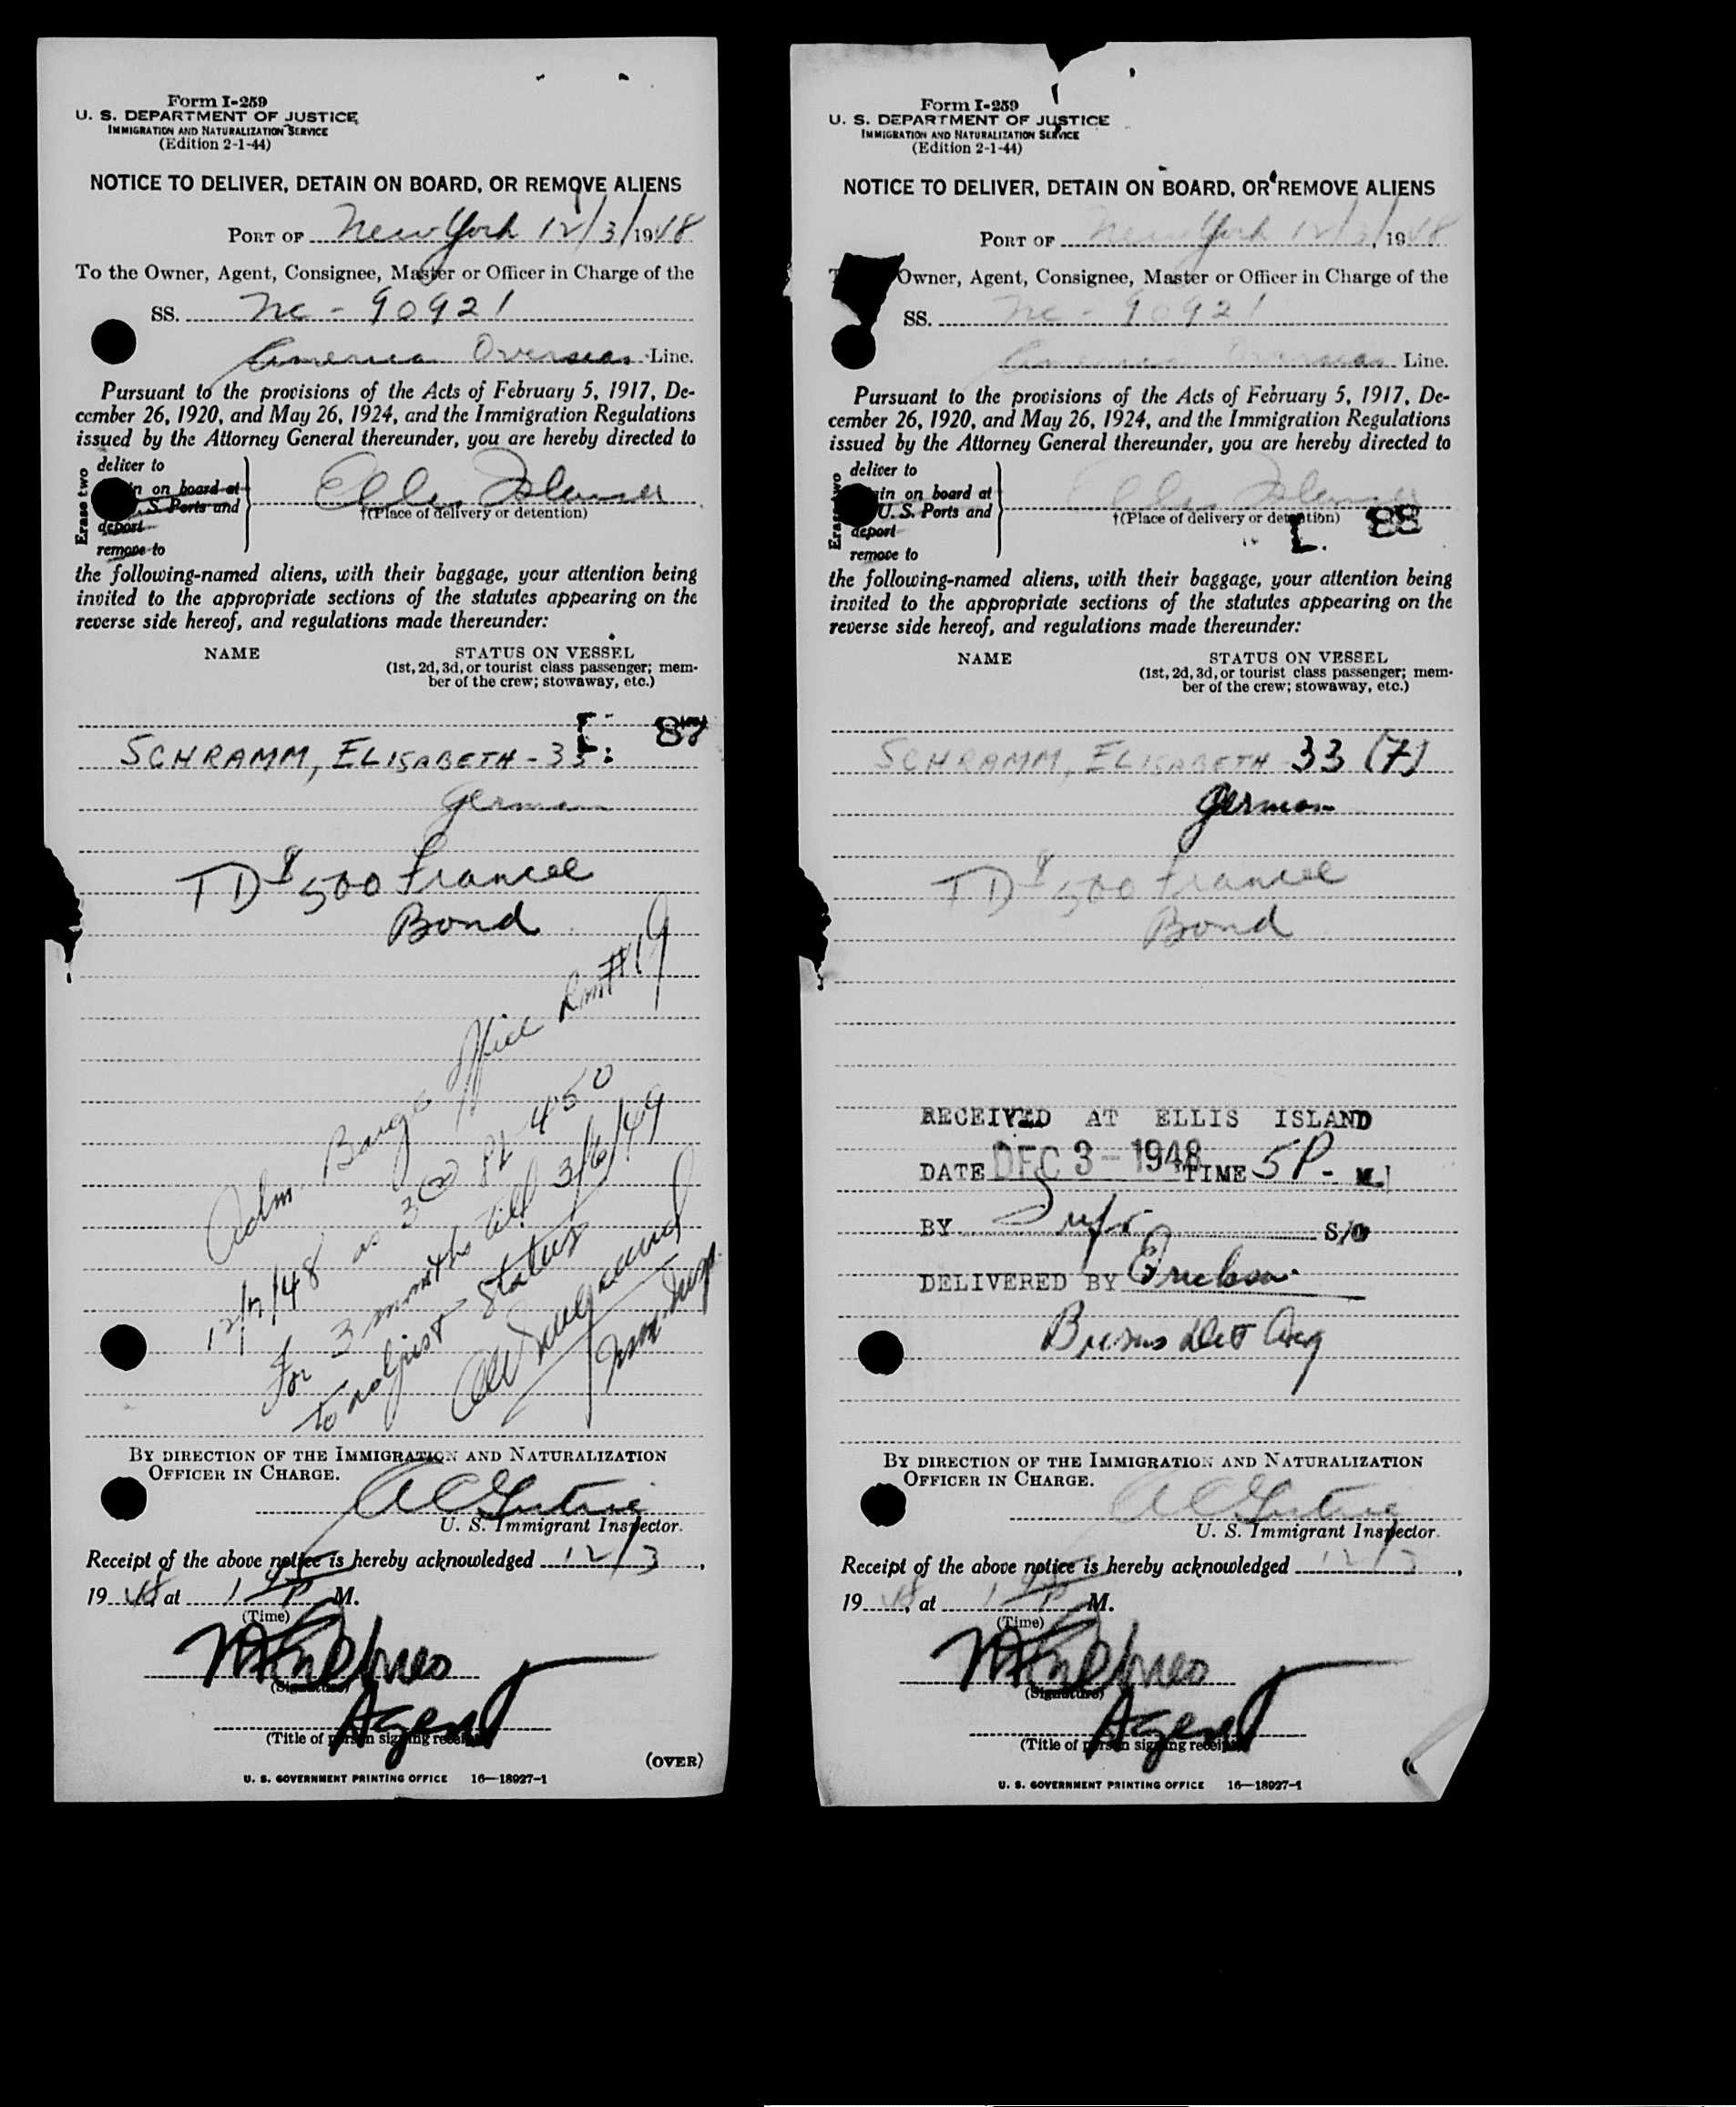 Form I-259
U. S. DEPARTMENT OF JUSTICE
IMMIGRATION AND NATURALIZATION SERVICE
(Edition 2-1-44)
NOTICE TO DELIVER, DETAIN ON BOARD, OR REMOVE ALIENS
PORT OF New York 12/3/1948
To the Owner, Agent, Consignee, Master or Officer in Charge of the
SS. NC - 90921
America Overseas Line.
Pursuant to the provisions of the Acts of February 5, 1917, De-
cember 26, 1920, and May 26, 1924, and the Immigration Regulations
issued by the Attorney General thereunder, you are hereby directed to
Erase two
deliver to
in on board at
S. Ports and
deport
remove to
Ellis Island
†(Place of delivery or detention)
the following-named aliens, with their baggage, your attention being
invited to the appropriate sections of the statutes appearing on the
reverse side hereof, and regulations made thereunder:
NAME STATUS ON VESSEL
(1st, 2d, 3d, or tourist class passenger; mem-
ber of the crew; stowaway, etc.)
SCHRAMM, ELISABETH - 33
German
TD $500
Bond
Adm. Barge Office
12/7/48 as 3(2) 450
For 3 months till 3/6/49
to adjust status
BY DIRECTION OF THE IMMIGRATION AND NATURALIZATION
OFFICER IN CHARGE.
U. S. Immigrant Inspector.
Receipt of the above notice is hereby acknowledged 12/3,
1948, at 1 P M.
(Time)
(Signature)
Agent
(Title of person signing receipt)
(OVER)
U. S. GOVERNMENT PRINTING OFFICE 16—18927-1
Form I-259
U. S. DEPARTMENT OF JUSTICE
IMMIGRATION AND NATURALIZATION SERVICE
(Edition 2-1-44)
NOTICE TO DELIVER, DETAIN ON BOARD, OR REMOVE ALIENS
PORT OF New York 12/3, 1948
Owner, Agent, Consignee, Master or Officer in Charge of the
SS. NC - 90921
America Overseas Line.
Pursuant to the provisions of the Acts of February 5, 1917, De-
cember 26, 1920, and May 26, 1924, and the Immigration Regulations
issued by the Attorney General thereunder, you are hereby directed to
Erase two
deliver to
in on board at
U. S. Ports and
deport
remove to
Ellis Island
†(Place of delivery or detention)
L. 88
the following-named aliens, with their baggage, your attention being
invited to the appropriate sections of the statutes appearing on the
reverse side hereof, and regulations made thereunder:
NAME STATUS ON VESSEL
(1st, 2d, 3d, or tourist class passenger; mem-
ber of the crew; stowaway, etc.)
SCHRAMM, ELISABETH 33 (7)
German
TD $500
Bond
RECEIVED AT ELLIS ISLAND
DATE DEC 3 - 1948 TIME 5 P - M.
BY S/O
DELIVERED BY Erickson
BY DIRECTION OF THE IMMIGRATION AND NATURALIZATION
OFFICER IN CHARGE.
U. S. Immigrant Inspector.
Receipt of the above notice is hereby acknowledged 12/3,
1948, at 1 P M.
(Time)
(Signature)
Agent
(Title of person signing receipt)
U. S. GOVERNMENT PRINTING OFFICE 16—18927-1